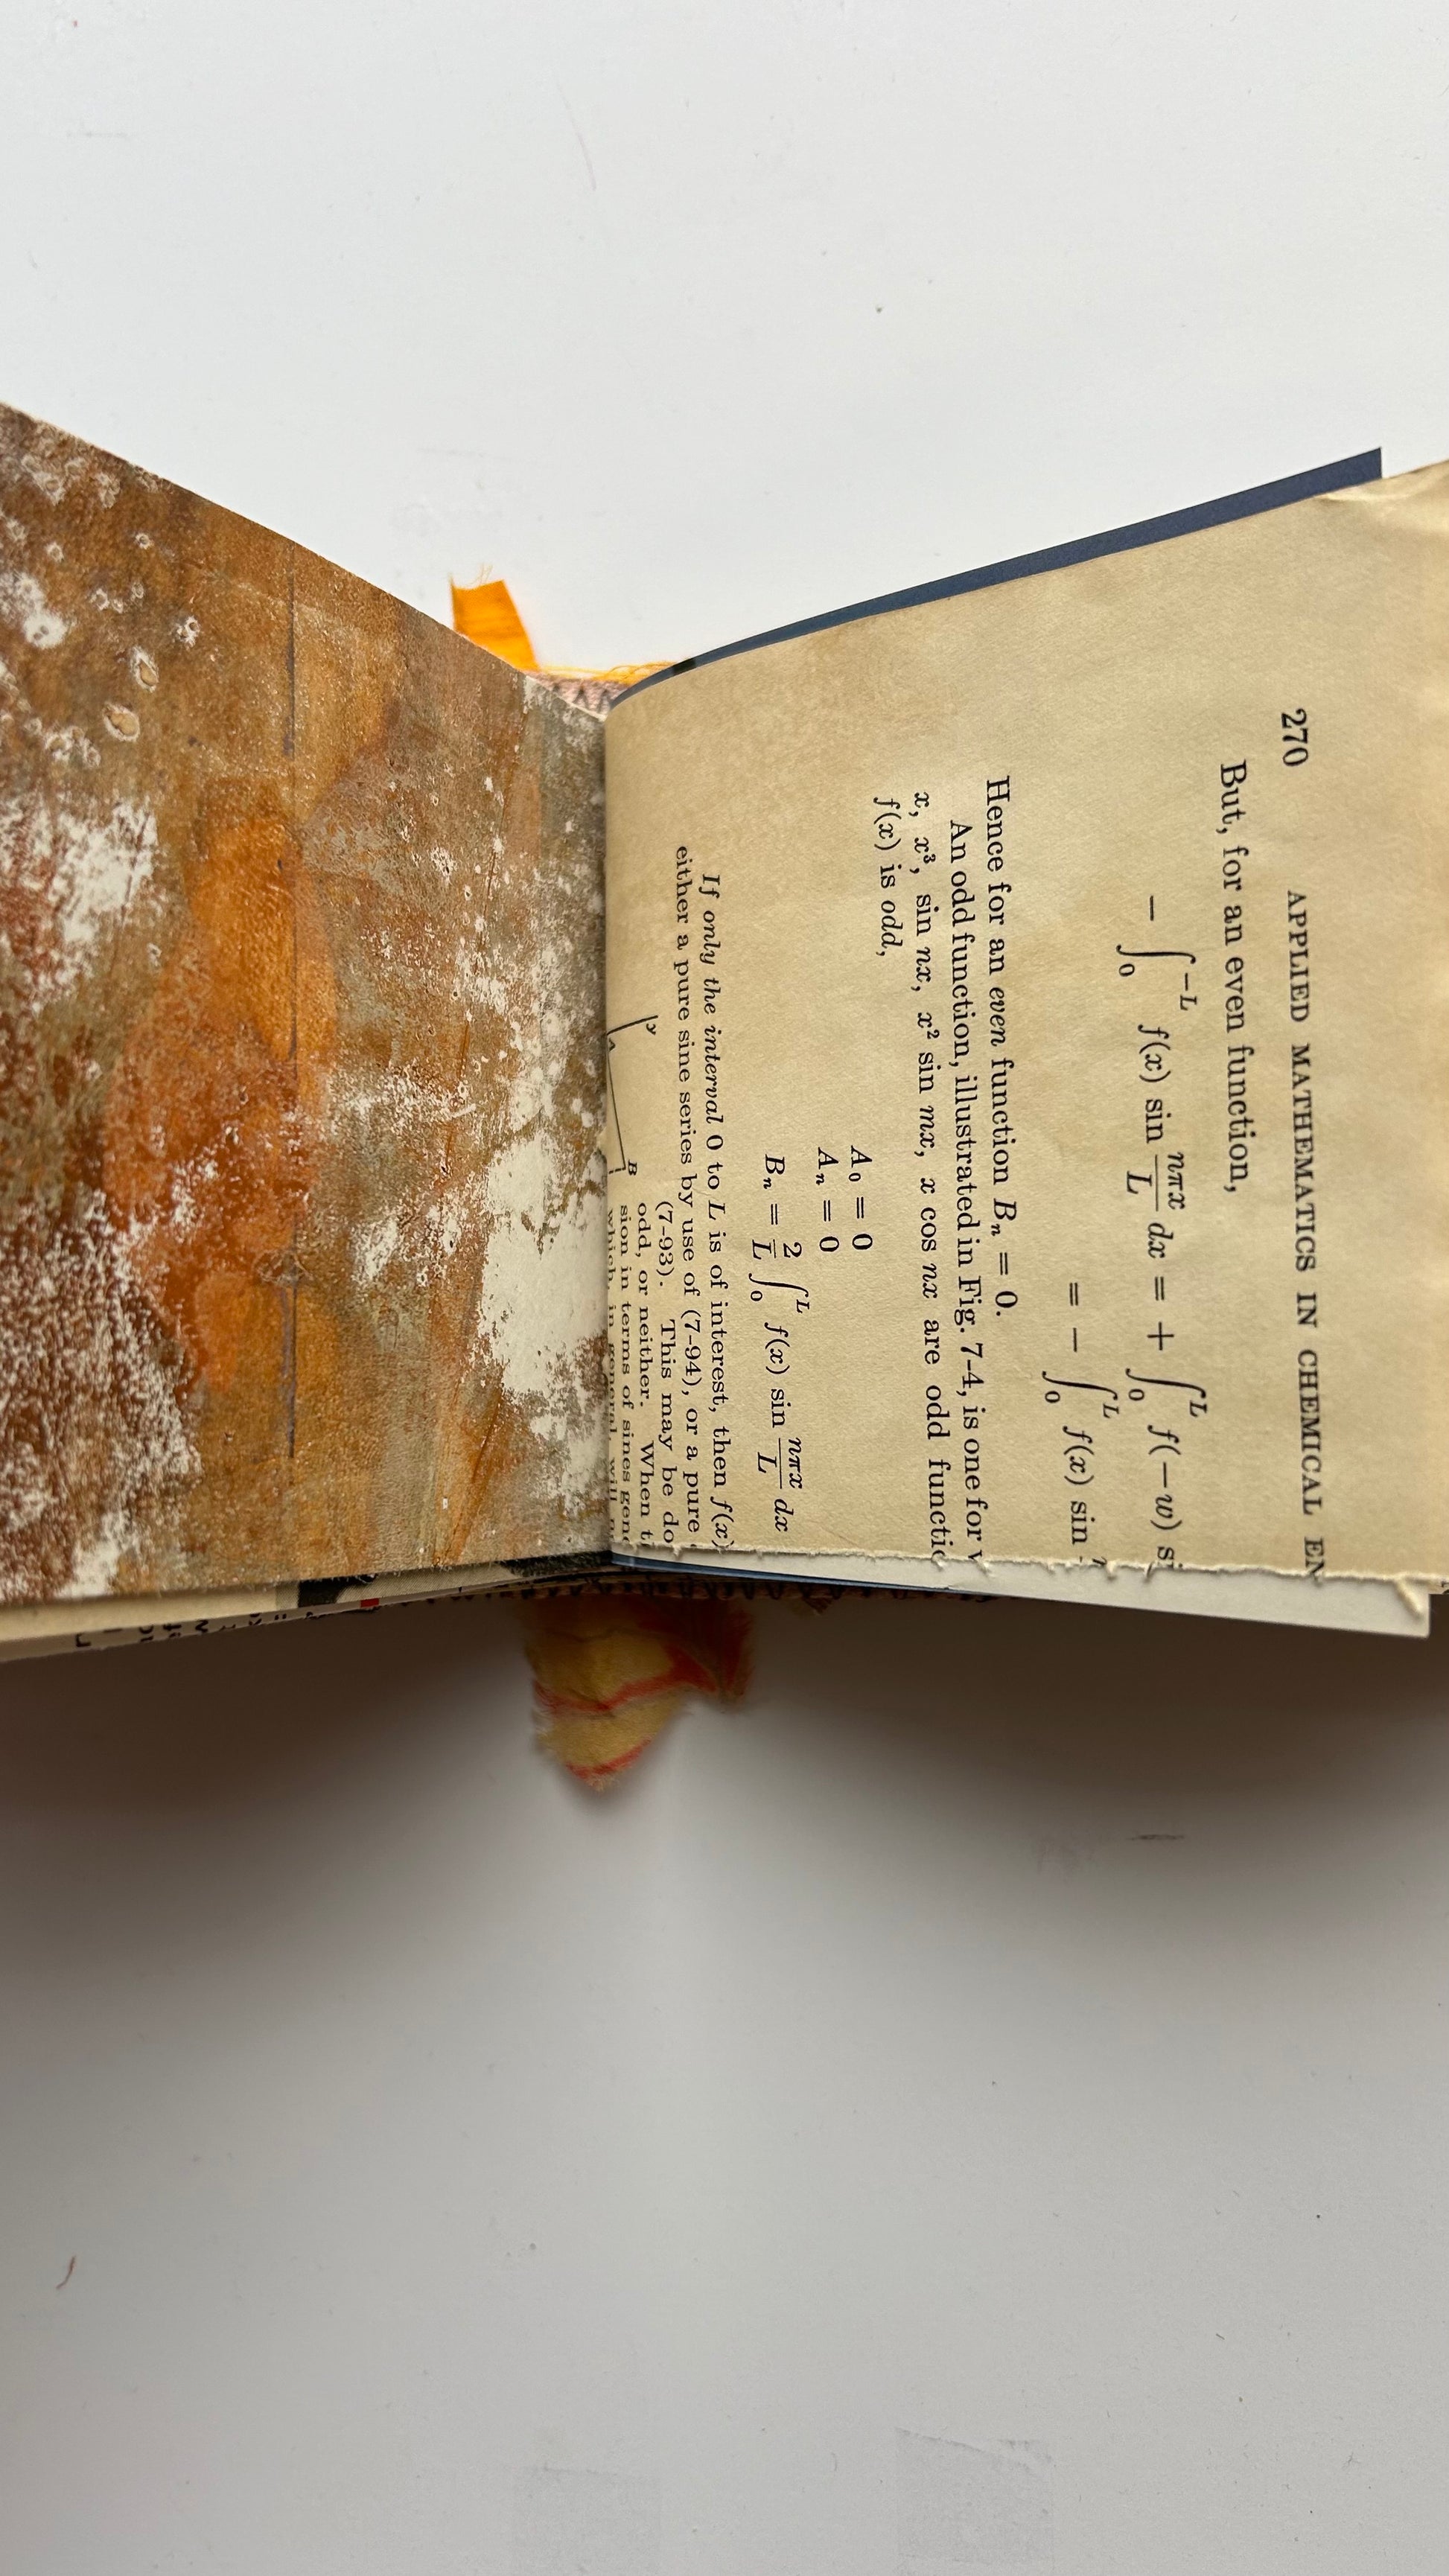 270 APPLIED MATHEMATICS IN CHEMICAL EN
But, for an even function,
− ∫₀^−L f(x) sin nπx/L dx = + ∫₀^L f(−w) si
= − ∫₀^L f(x) sin
Hence for an even function Bₙ = 0.
An odd function, illustrated in Fig. 7-4, is one for
x, x³, sin nx, x² sin mx, x cos nx are odd functio
f(x) is odd,
A₀ = 0
Aₙ = 0
Bₙ = 2/L ∫₀^L f(x) sin nπx/L dx
If only the interval 0 to L is of interest, then f(x)
either a pure sine series by use of (7-94), or a pure
(7-93). This may be do
odd, or neither. When t
sion in terms of sines gene
which, in general, will
y
A
B